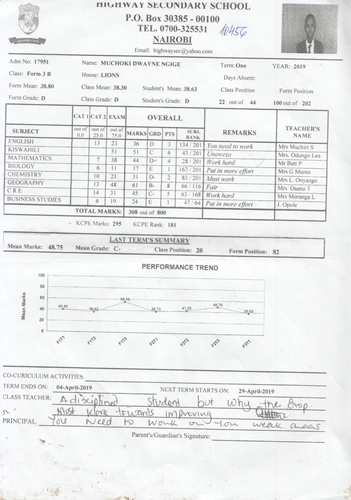 HIGHWAY SECONDARY SCHOOL
P.O. Box 30385 - 00100
TEL. 0700-325531
10456
NAIROBI
Email: highwaysec@yahoo.com
Adm No: 17951 Name: MUCHOKI DWAYNE NGIGE Term: One YEAR: 2019
Class: Form 3 B House: LIONS Days Absent:
Form Mean: 38.80 Class Mean: 38.30 Student's Mean: 38.63 Class Position Form Position
Form Grade: D Class Grade: D- Student's Grade: D 22 out of 44 100 out of 202
CAT 1 CAT 2 EXAM OVERALL
SUBJECT out of 0.0 out of 25.0 out of 75.0 MARKS GRD PTS SUBJ. RANK REMARKS TEACHER'S NAME
ENGLISH 13 23 36 D 3 134 / 201 You need to work Mrs Muchiri S
KISWAHILI 51 51 C 6 43 / 201 Unaweza Mrs. Odungo Lea
MATHEMATICS 7 38 44 D+ 4 28 / 201 Work hard Mr Bett P
BIOLOGY 6 11 17 E 1 167 / 201 Put in more effort Mrs G Mumo
CHEMISTRY 10 21 31 D- 2 83 / 201 Must work Mrs L. Onyango
GEOGRAPHY 13 48 61 B- 8 66 / 116 Fair Mrs Osano T
C R E 14 31 45 C- 5 63 / 168 Work hard Mrs Moranga L
BUSINESS STUDIES 6 19 24 E 1 47 / 64 Put in more effort J. Opele
TOTAL MARKS: 308 out of 800
KCPE Marks: 295 KCPE Rank: 181
LAST TERM'S SUMMARY
Mean Marks: 48.75 Mean Grade: C- Class Position: 20 Form Position: 82
PERFORMANCE TREND
Mean Marks
100
80
60
40
20
0
CO-CURICULUM ACTIVITIES
TERM ENDS ON: 04-April-2019 NEXT TERM STARTS ON: 29-April-2019
CLASS TEACHER: A disciplined student but why the drop.
Must work towards improving
PRINCIPAL You need to work on your weak areas
Parent's/Guardian's Signature: